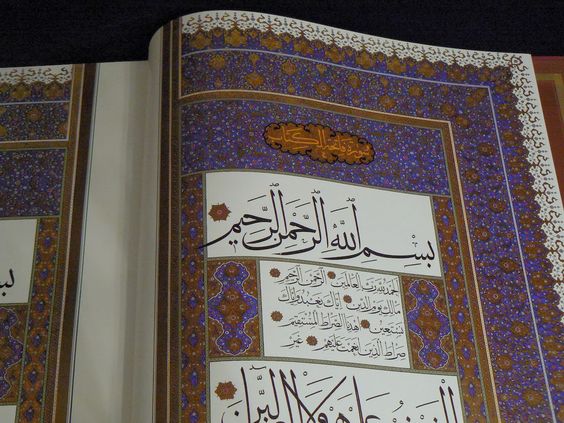 سورة فاتحة الكتاب
بِسْمِ اللَّهِ الرَّحْمَٰنِ الرَّحِيمِ
الحمد لله رب العالمين الرحمن الرحيم
مالك يوم الدين اياك نعبد واياك
نستعين اهدنا الصراط المستقيم
صراط الذين انعمت عليهم غير
عليهم ولا